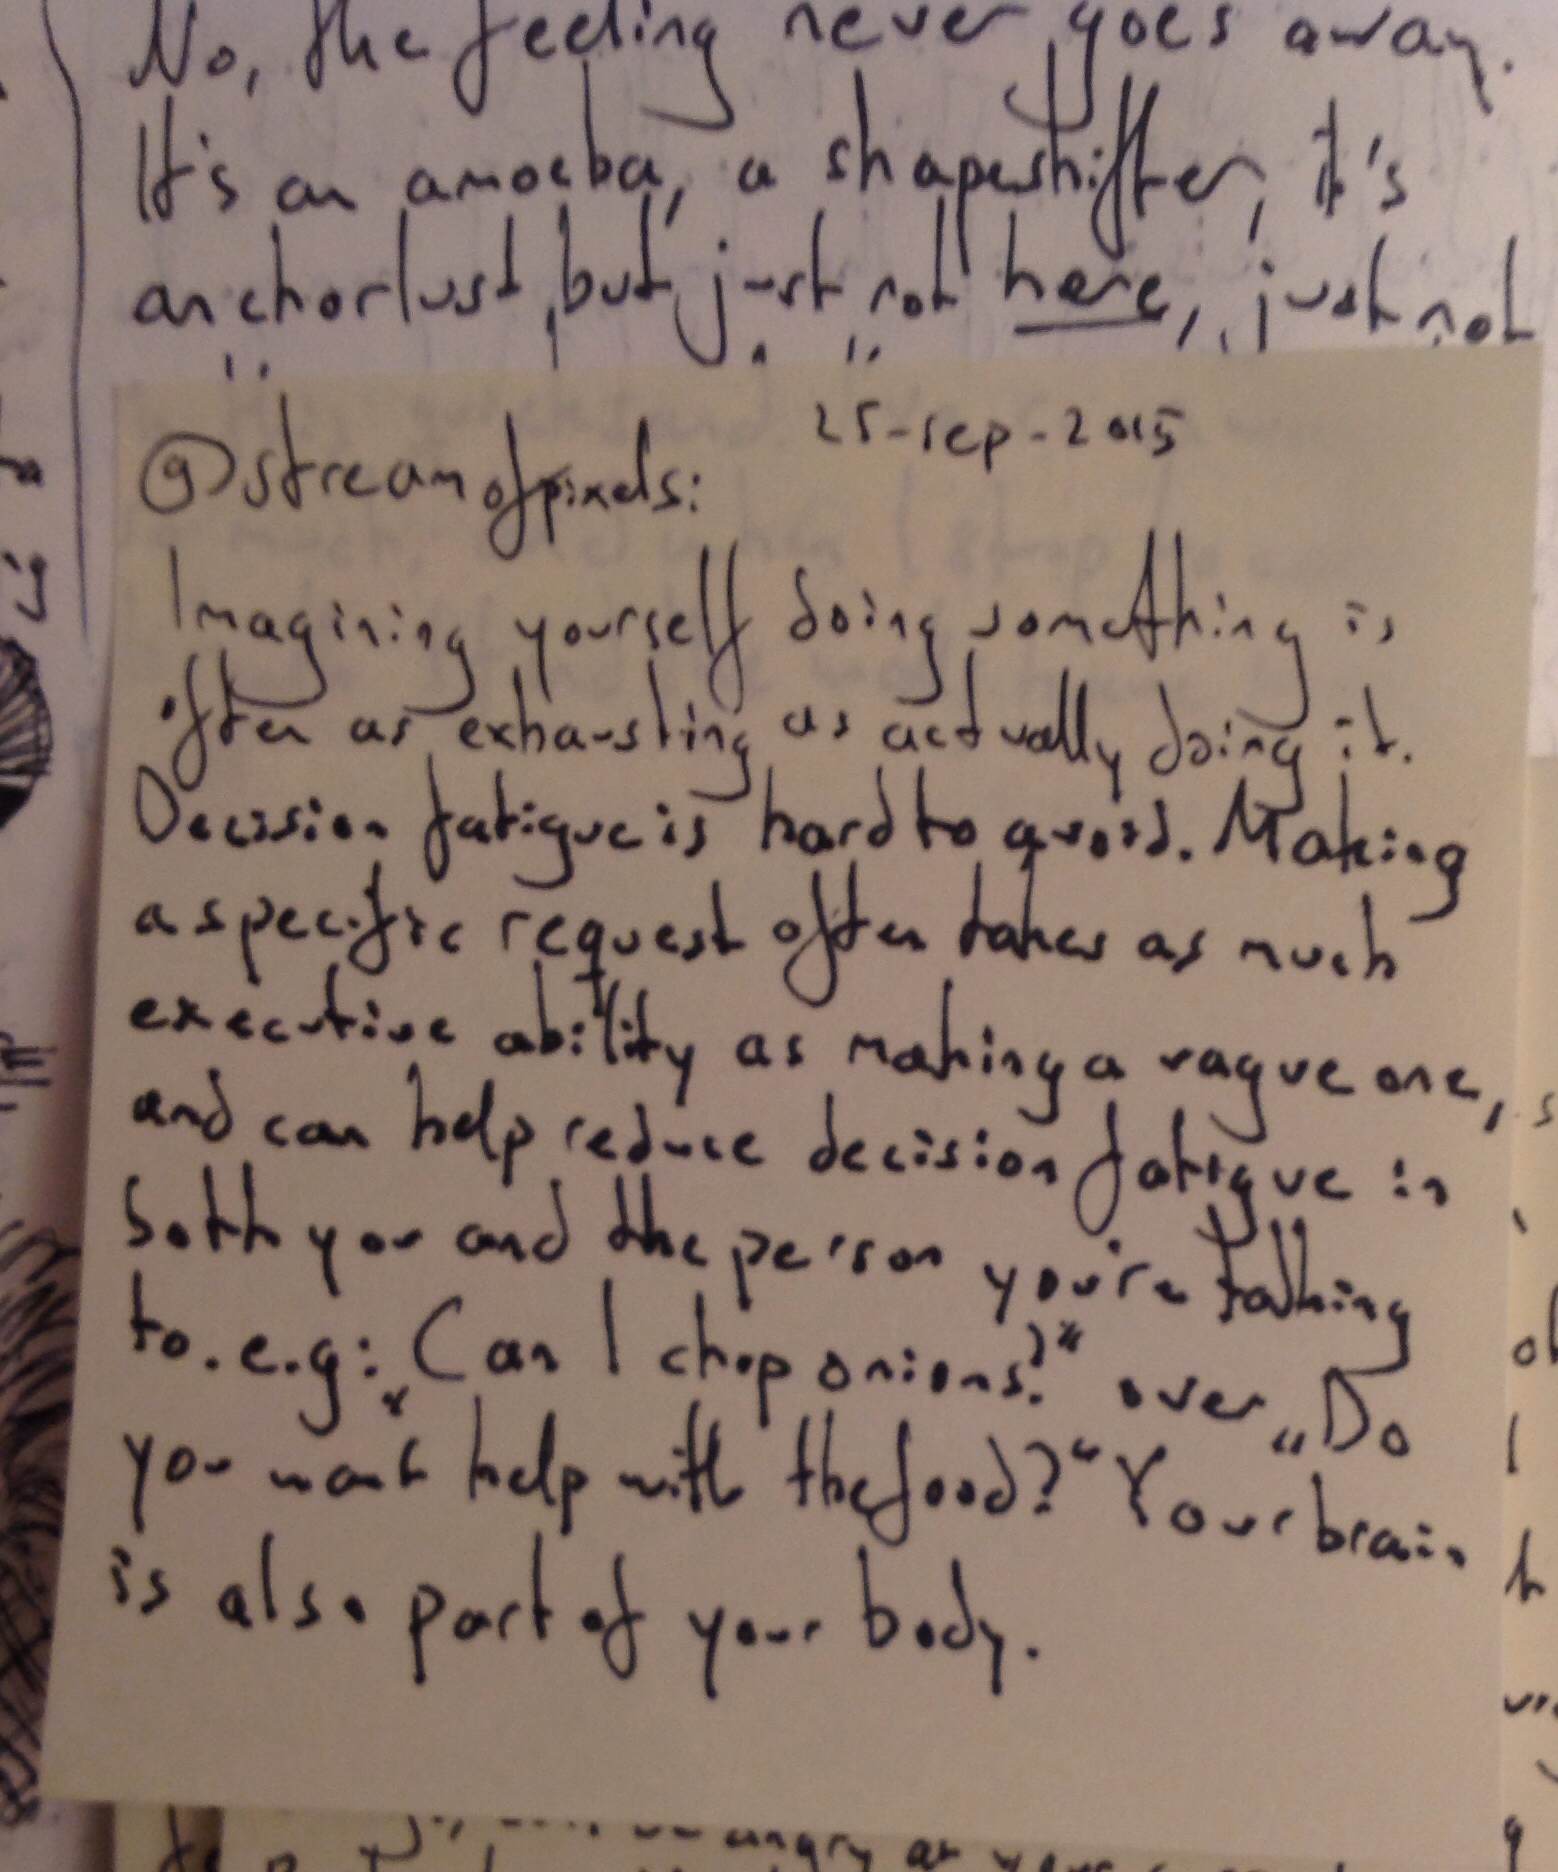 No, the feeling never goes away.
It's an amoeba, a shapeshifter, it's
anchorlust, but just not here, just not
25-sep-2015
@streamofpixels:
Imagining yourself doing something is
often as exhausting as actually doing it.
Decision fatigue is hard to avoid. Making
a specific request often takes as much
executive ability as making a vague one,
and can help reduce decision fatigue in
both you and the person you're talking
to. e.g: „Can I chop onions?" over „Do
you want help with the food?" Your brain
is also part of your body.
angry at